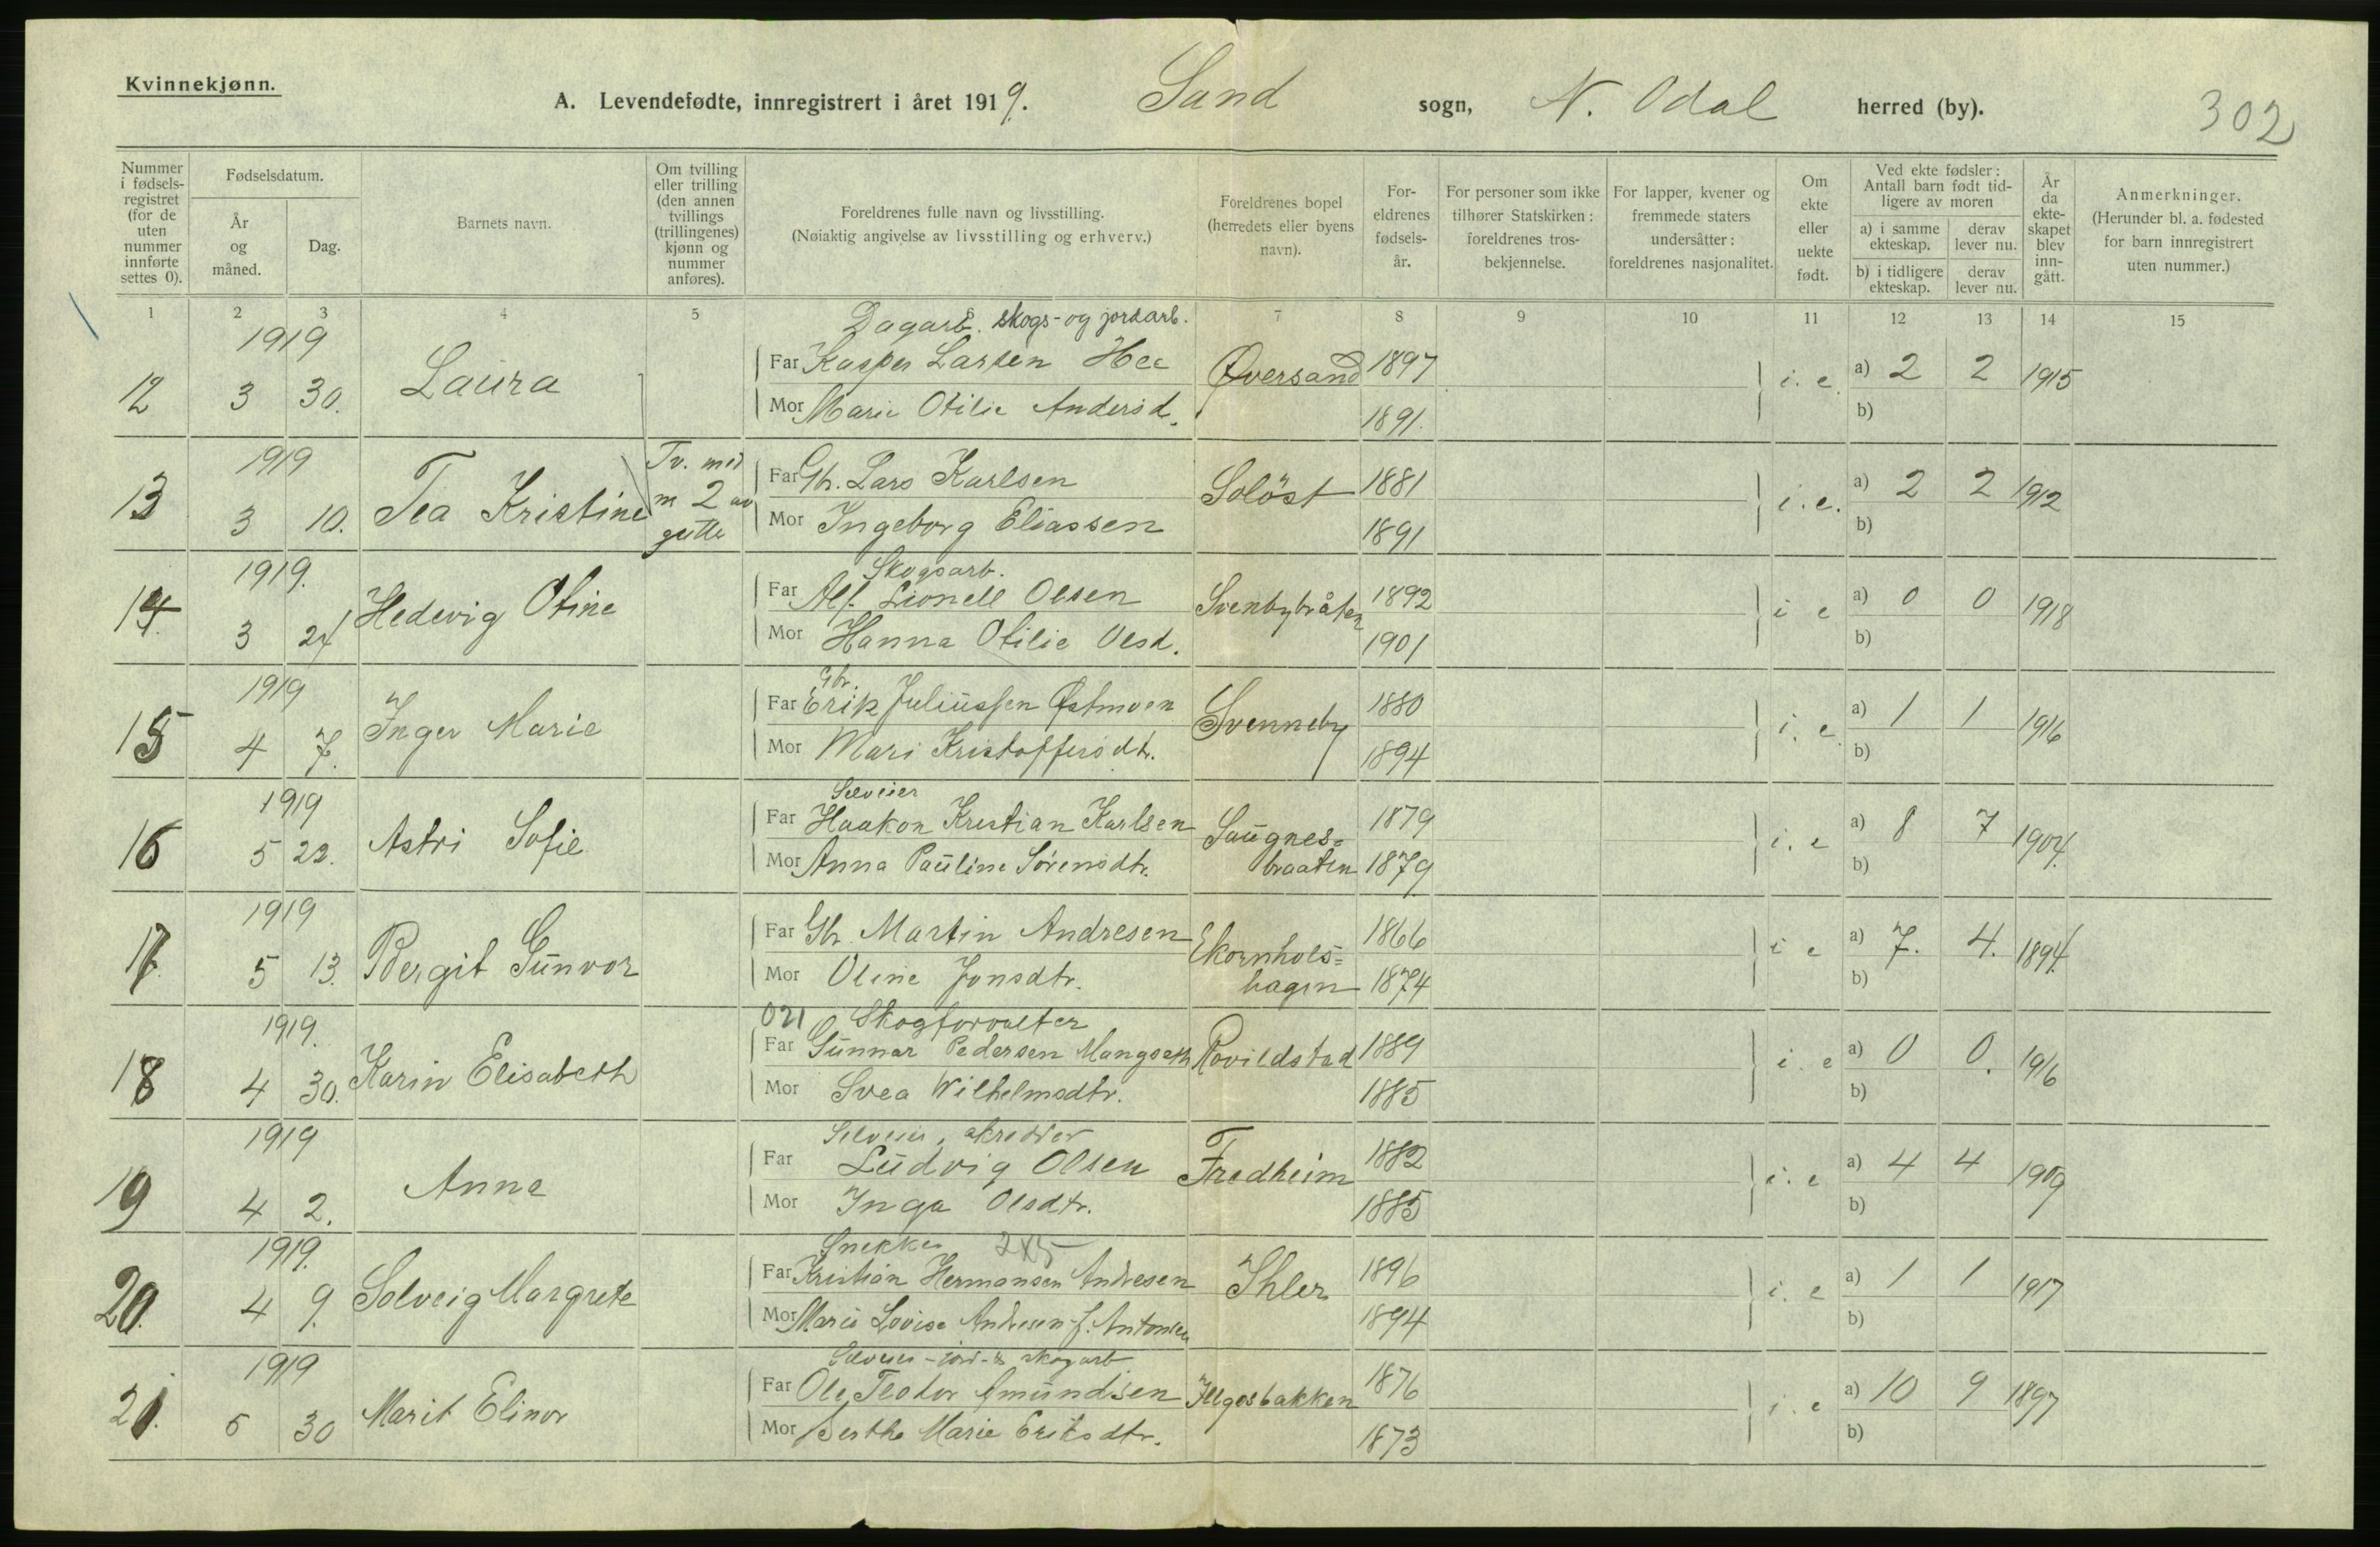 Kvinnekjønn.
A. Levendefødte, innregistrert i året 1919. Sand sogn, N. Odal herred (by). 302
Nummer i fødsels-registret (for de uten nummer innførte settes 0).
Fødselsdatum.
År og måned.
Dag.
Barnets navn.
Om tvilling eller trilling (den annen tvillings (trillingenes) kjønn og nummer anføres).
Foreldrenes fulle navn og livsstilling.
(Nøiaktig angivelse av livsstilling og erhverv.)
Foreldrenes bopel (herredets eller byens navn).
For-eldrenes fødsels-år.
For personer som ikke tilhører Statskirken: foreldrenes tros-bekjennelse.
For lapper, kvener og fremmede staters undersåtter: foreldrenes nasjonalitet.
Om ekte eller uekte født.
Ved ekte fødsler: Antall barn født tid-ligere av moren
a) i samme ekteskap. derav lever nu.
b) i tidligere ekteskap. derav lever nu.
År da ekte-skapet blev inn-gått.
Anmerkninger.
(Herunder bl. a. fødested for barn innregistrert uten nummer.)
1 2 3 4 5 7 8 9 10 11 12 13 14 15
1919 Dagarb. skogs- og jordarb.
12 3 30. Laura Far Kasper Larsen Øversand 1897 i. e. a) 2 2 1915
Mor Marie Otilie Andersd. 1891. b)
1919 Tv. med
13 3 10. Tea Kristine m 2 av gutte Far Gbr. Lars Karlsen Soløst 1881 i. e. a) 2 2 1912
Mor Ingeborg Eliassen 1891 b)
1919. Skogsarb.
14. 3 24 Hedevig Otine Far Alf. Lionell Olsen Svenbybråten 1892 i e a) 0 0 1918
Mor Hanna Otilie Olsd. 1901 b)
1919 Gbr.
15 4 7. Inger Marie Far Erik Juliussen Østmoen Svenneby 1880 i. e. a) 1 1 1916
Mor Mari Kristoffersdtr. 1894 b)
1919 Selveier
16 5 22. Astri Sofie Far Haakon Kristian Karlsen Saugnes=braaten 1879 i. e a) 8 7 1904.
Mor Anna Pauline Sørensdtr. 1879 b)
1919
17. 5 13. Bergit Gunvor Far Gbr. Martin Andresen Ekornhols=hagen 1866 i e a) 7. 4. 1894.
Mor Oline Jonsdtr. 1874 b)
1919. 021 Skogforvalter
18 4 30. Karin Elisabeth Far Gunnar Pedersen Mangseth Rovildstad 1889 i. e a) 0 0. 1916
Mor Svea Wilhelmsdtr. 1885 b)
1919 Selveier, skredder
19 4 2. Anna Far Ludvig Olsen Fredheim 1882 i. e a) 4 4 1909
Mor Inga Olsdtr. 1885 b)
1919. Snekker 2x5
20. 4 9. Solveig Margrete Far Kristian Hermansen Andresen Ihler 1896 i. e a) 1 1 1917
Mor Marie Lovise Andresen f. Antonsen 1894 b)
1919 Selveier - jord- & skogarb
21. 5 30 Marit Elinor Far Ole Teodor Amundsen Illgosbakken 1876 i. e a) 10 9 1897
Mor Berthe Marie Eriksdtr. 1873 b)